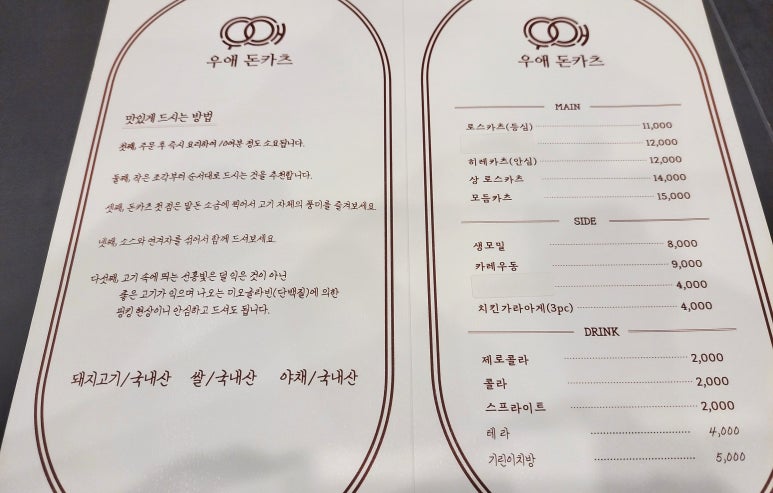 우애
우애 돈카츠
맛있게 드시는 방법
첫째, 주문 후 즉시 요리하여 10여분 정도 소요됩니다.
둘째, 작은 조각부터 순서대로 드시는 것을 추천합니다.
셋째, 돈카츠 첫 점은 말돈 소금에 찍어서 고기 자체의 풍미를 즐겨보세요
넷째, 소스와 연겨자를 섞어서 함께 드셔보세요
다섯째, 고기 속에 띄는 선홍빛은 덜 익은 것이 아닌
좋은 고기가 익으며 나오는 미오글라빈(단백질)에 의한
핑킹 현상이니 안심하고 드셔도 됩니다.
돼지고기/국내산 쌀/국내산 야채/국내산
우애
우애 돈카츠
MAIN
로스카츠(등심) 11,000
12,000
히레카츠(안심) 12,000
상 로스카츠 14,000
모듬카츠 15,000
SIDE
생모밀 8,000
카레우동 9,000
4,000
치킨가라아게(3pc) 4,000
DRINK
제로콜라 2,000
콜라 2,000
스프라이트 2,000
테라 4,000
기린이치방 5,000